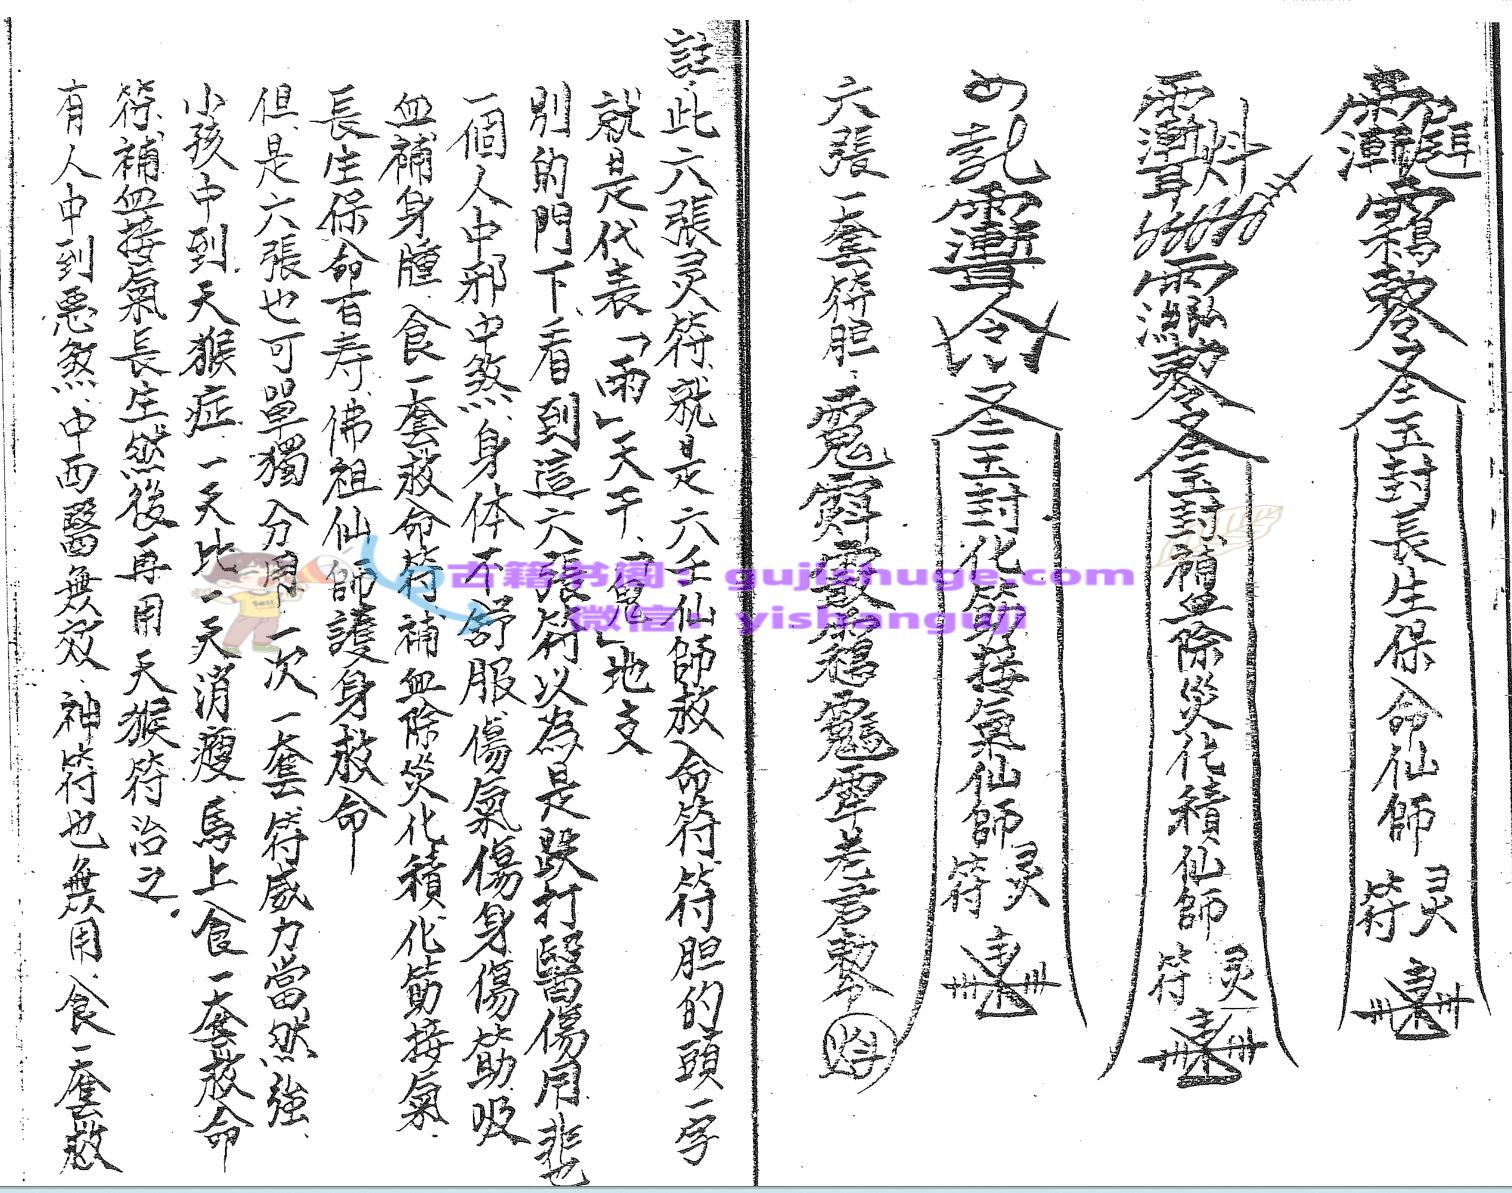 玉封長生保命仙師
灵符
玉封補血除災化積仙師
灵符
玉封化筋接氣仙師
灵符
六張一套符胆
老君勅令
註、此六張灵符、就是六壬仙師救命符、符胆的頭一字
就是代表「雨」天干、「鬼」地支
別的門下看到這六張符以為是跌打醫傷用非也
一個人中邪中煞、身体不舒服、傷氣傷身傷筋、吸
血補身腫、食一套救命符補血除災化積、化筋接氣、
長生保命百寿、佛祖仙師護身救命
但是六張也可單獨分用一次一套、符威力當然強、
小孩中到天猴症、一天比一天消瘦、馬上食一套救命
符、補血接氣長生然後再用天猴符治之。
有人中到惡煞、中西醫無效、神符也無用、食一套救
古籍书阁：gujishuge.com
微信：yishanguji